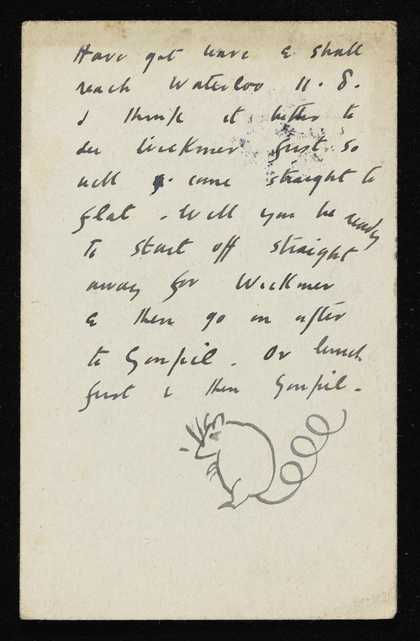 Have got leave & shall
reach Waterloo 11.8.
I think it better to
see Wickmer first. So
will come straight to
flat. Will you be ready
to start off straight
away for Wickmer
& then go on after
to Goupil. Or lunch
first & then Goupil.